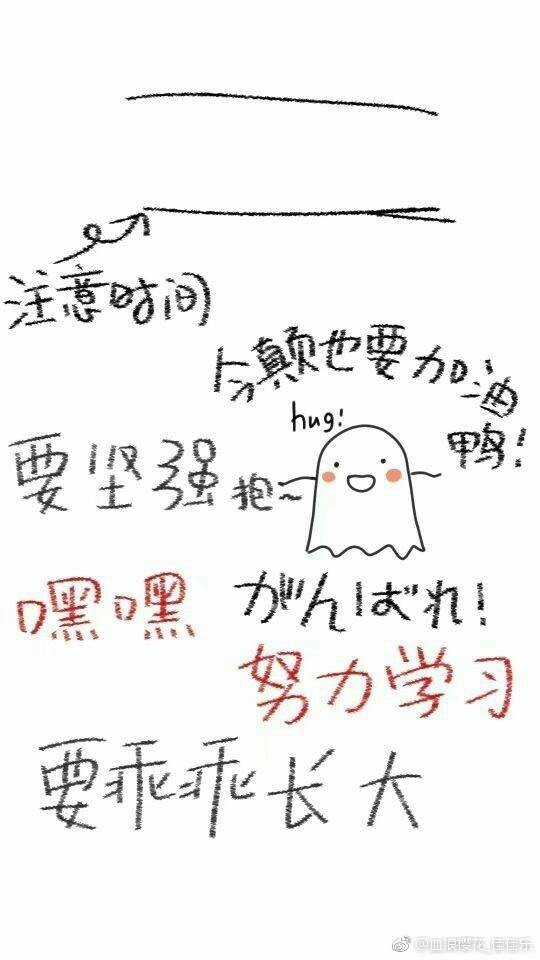 注意时间
今颠也要加油
鸭!
hug!
要坚强 抱~
嘿嘿
がんばれ!
努力学习
要乖乖长大